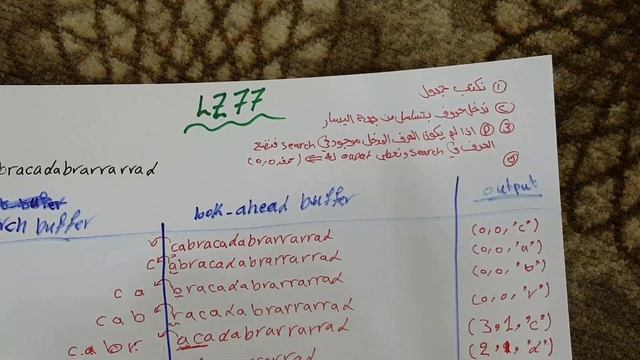 LZ77
① نكتب جدول
② ندخل حروف بتسلسل من جهة اليسار
③ ⓟ اذا لم يكون الحرف المدخل موجود في search فنضع
الحرف في search ونعطي output له ⇐ (0,0,حرف)
bracadabrarrarrad
rch buffer look-ahead buffer output
cabracadabrarrarrad (0,0,"c")
c abracadabrarrarrad (0,0,"a")
c a bracadabrarrarrad (0,0,"b")
c a b racadabrarrarrad (0,0,"r")
c a b r acadabrarrarrad (3,1,"c")
(2,1,"d")